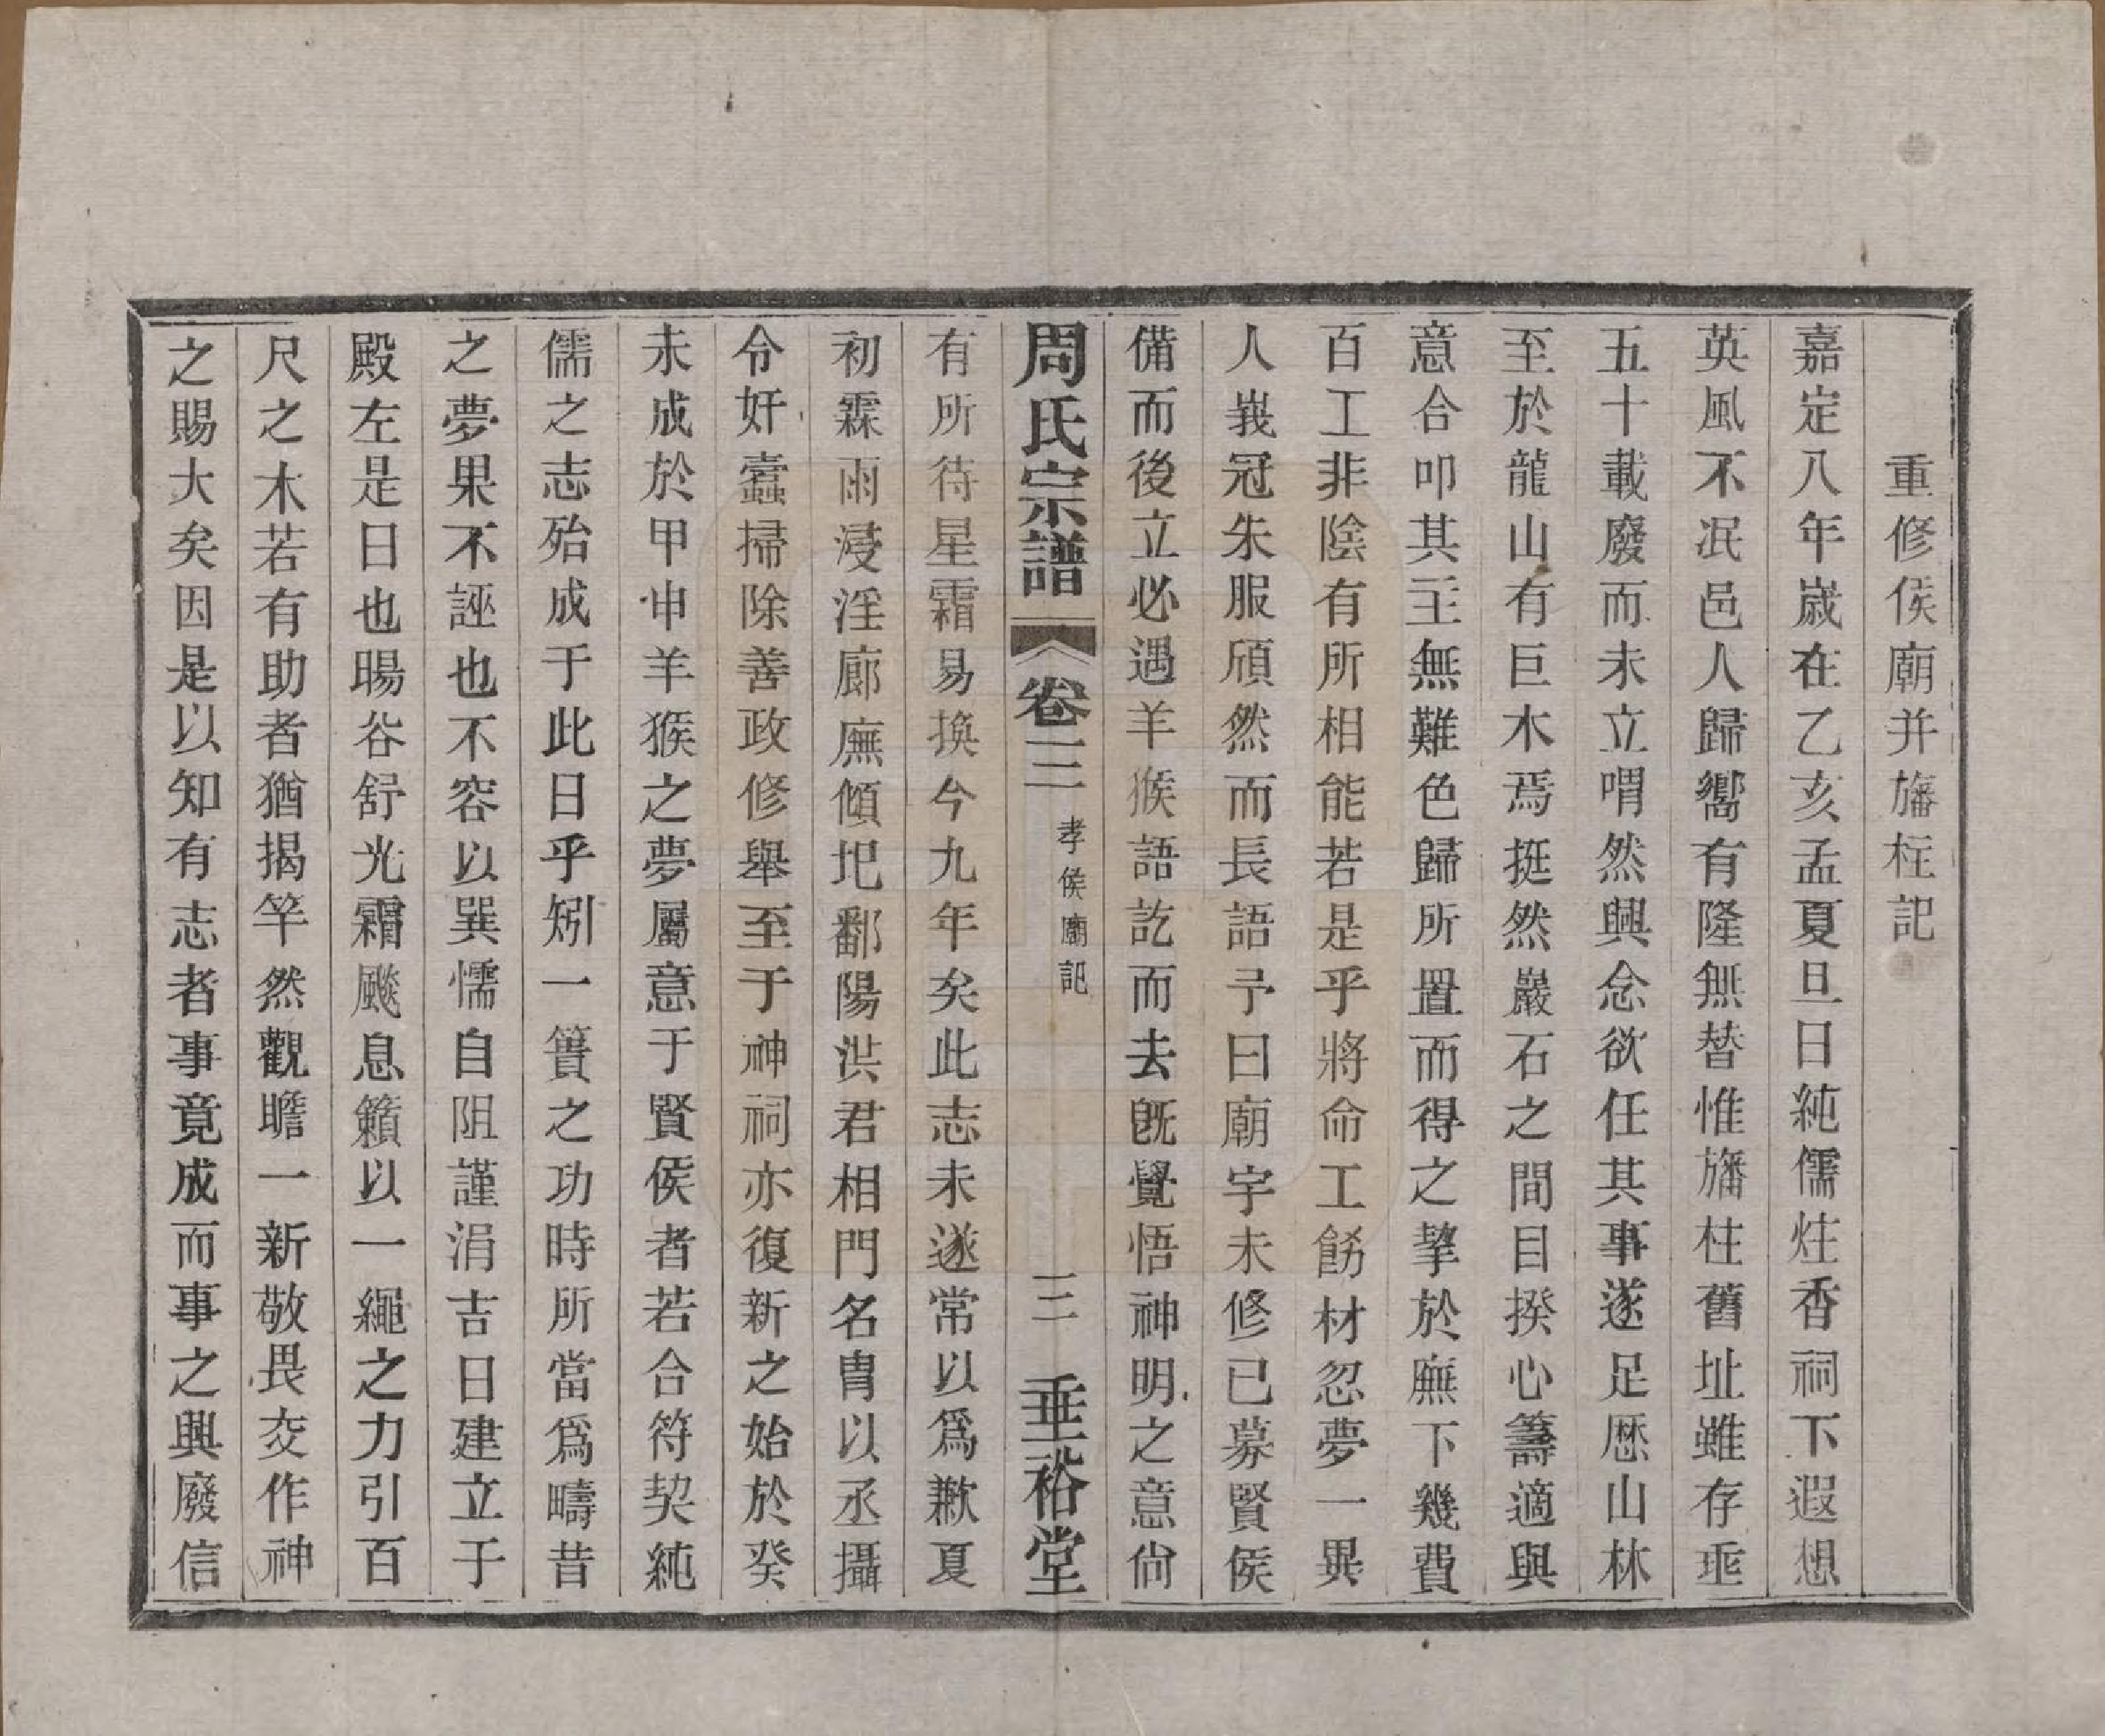 重修侯廟并旛柱記
嘉定八年歲在乙亥孟夏旦日純儒炷香祠下遐想
英風不泯邑人歸嚮有隆無替惟旛柱舊址雖存乖
五十載廢而未立喟然興念欲任其事遂足歷山林
至於龍山有巨木焉挺然巖石之間目揆心籌適與
意合叩其主無難色歸所置而得之挈於廡下幾費
百工非陰有所相能若是乎將命工餝材忽夢一異
人峩冠朱服頎然而長語予曰廟宇未修已募賢侯
備而後立必遇羊猴語訖而去旣覺悟神明之意尙
周氏宗譜 卷三 孝侯廟記 三 垂裕堂
有所待星霜易換今九年矣此志未遂常以爲歉夏
初霖雨浸淫廊廡傾圯鄱陽洪君相門名胄以丞攝
令奸蠹掃除善政修舉至于神祠亦復新之始於癸
未成於甲申羊猴之夢屬意于賢侯者若合符契純
儒之志殆成于此日乎矧一簣之功時所當爲疇昔
之夢果不誣也不容以巽懦自阻謹涓吉日建立于
殿左是日也暘谷舒光霜颷息籟以一繩之力引百
尺之木若有助者猶揭竿然觀瞻一新敬畏交作神
之賜大矣因是以知有志者事竟成而事之興廢信